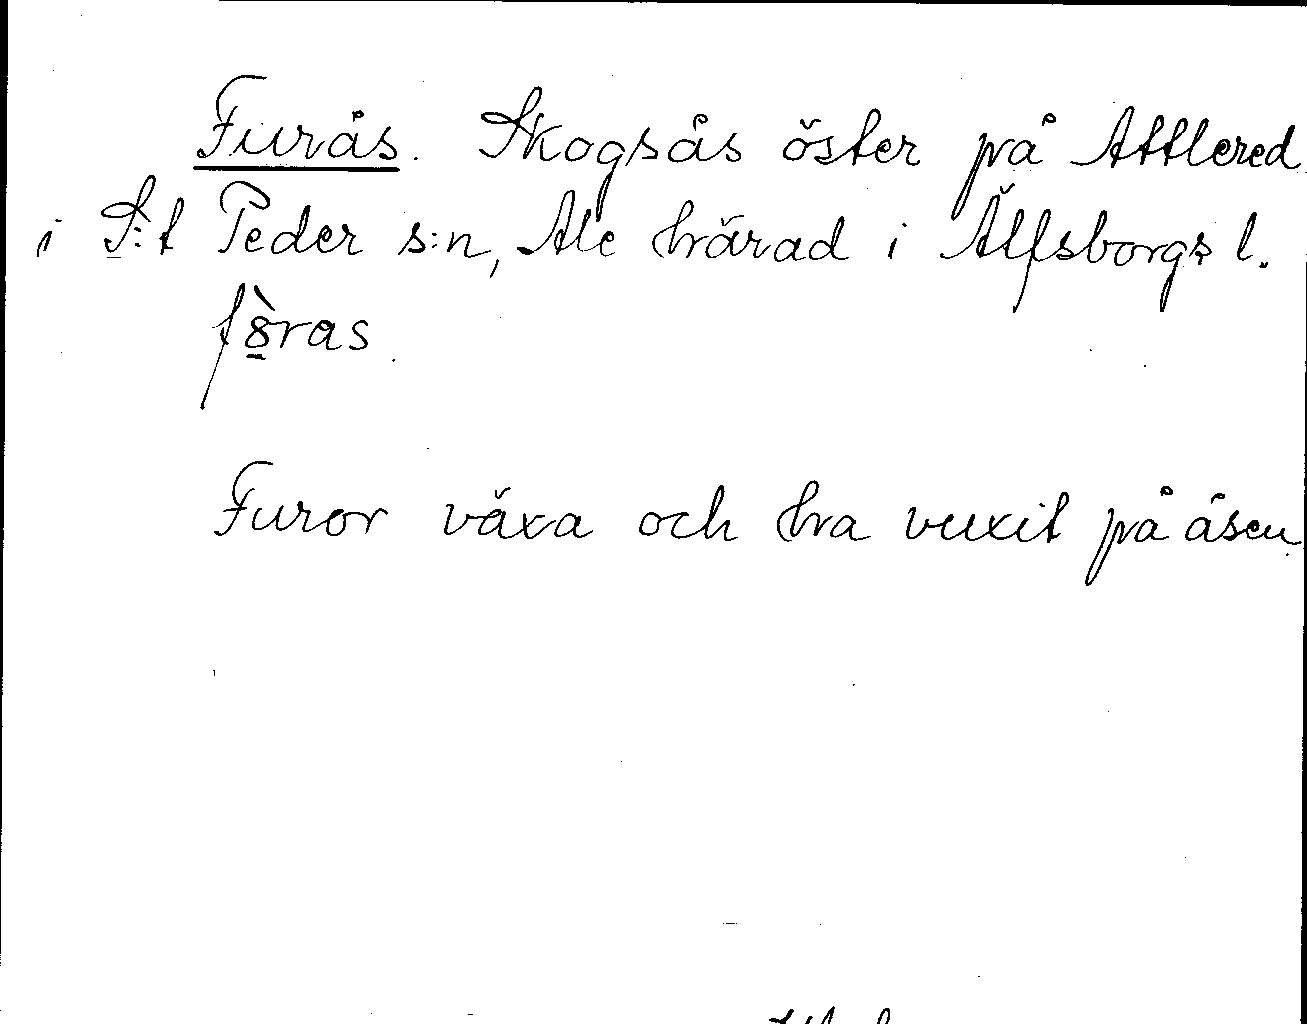 Furås. Skogsås öster på Attlered
i S:t Peder s:n, Ale härad i Älfsborgs l.
fò̱ras
Furor växa och ha vuxit på åsen